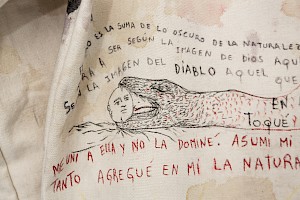 ES LA SUMA DE LO OSCURO DE LA NATURALEZ
A SER SEGÚN LA IMAGEN DE DIOS AQUE
SEGÚN LA IMAGEN DEL DIABLO AQUEL QUE
EN
TOQUÉ Y
ME UNI A ELLA Y NO LA DOMINÉ. ASUMI MI
TANTO AGREGUÉ EN MÍ LA NATURA